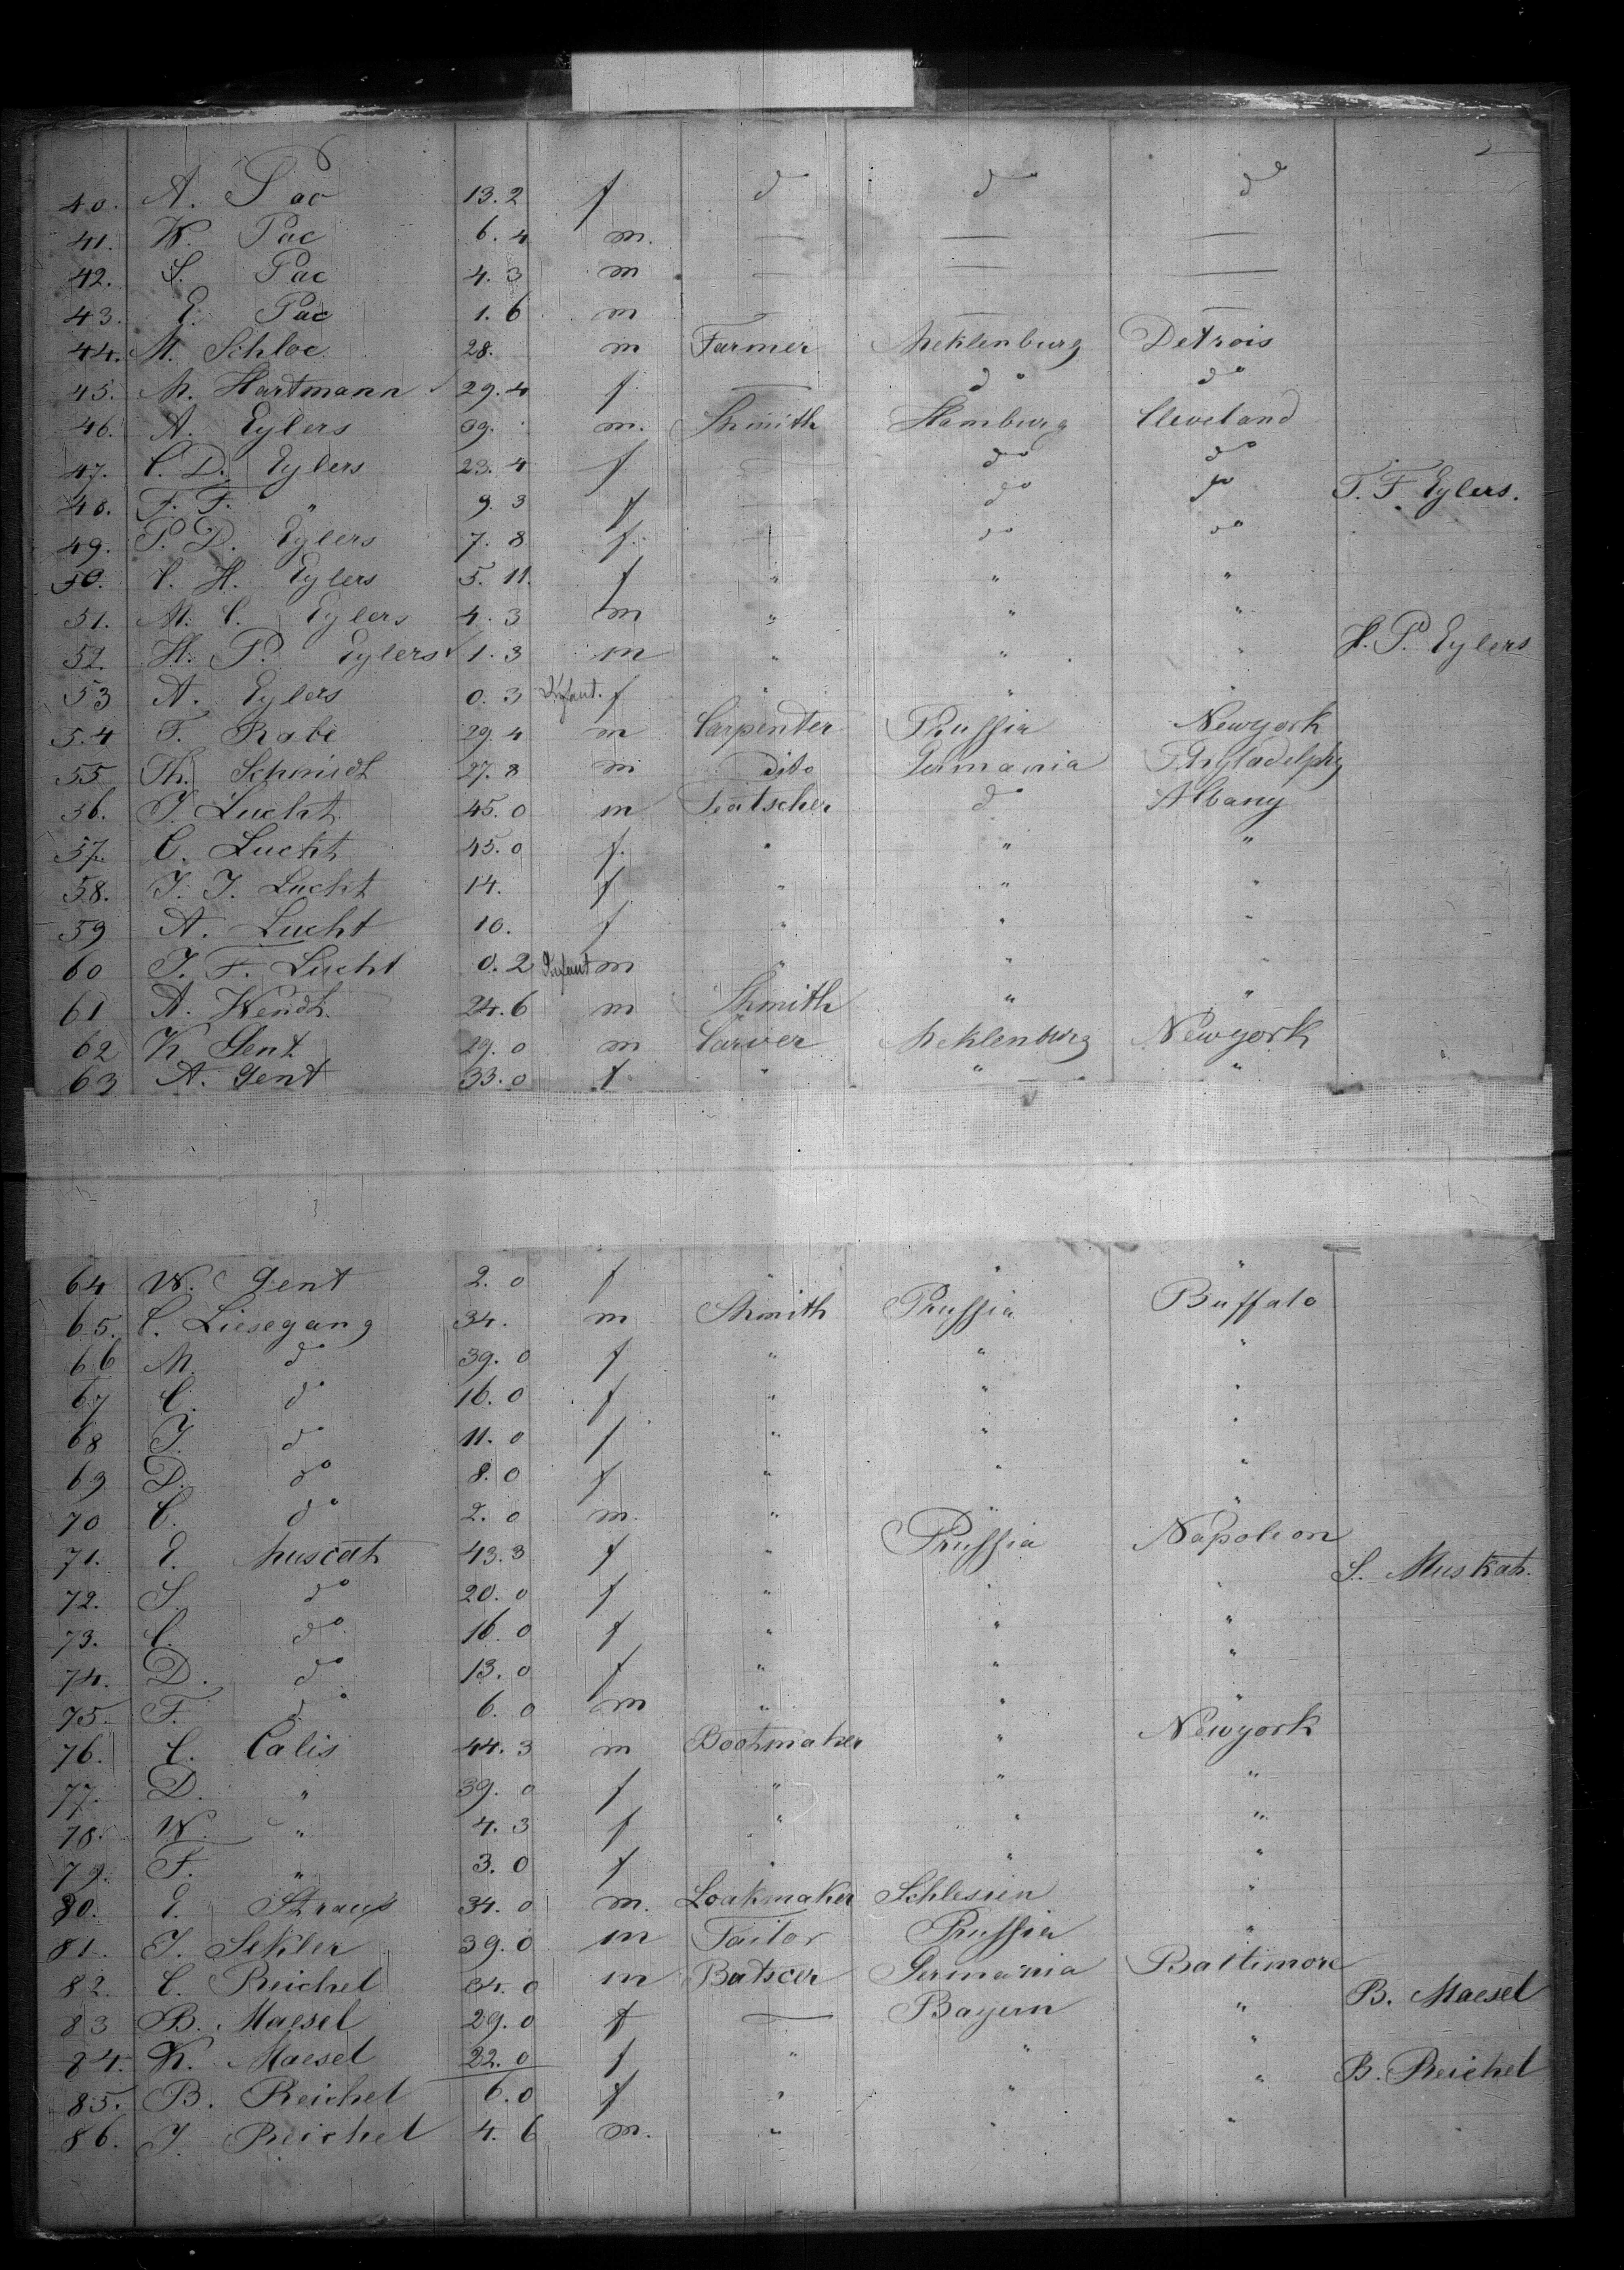 40. A. Pac 13.2 f do do do
41. W. Pac 6.4 m. — — —
42. S. Pac 4.3 m — — —
43. E. Pac 1.6 m — — —
44. M. Schloe 28. m Farmer Meklenburg Detrois
45. M. Hartmann 29.4 f. — do do
46. A. Eylers 39. m. Shmith Hamburg Cleveland
47. C. D. Eylers 23.4 f — do do
48. F. F. " 9.3 f — do do T. F Eylers.
49. P. D. Eylers 7.8 f. do do
50. C. H. Eylers 5.11. f " " "
51. M. C. Eylers 4.3 m " " "
52. H. P. Eylers 1.3 m " " " H. P. Eylers
53 A. Eylers 0.3 Infant. f " " "
54 F. Rabe 29.4 m Carpenter Prussia Newyork
55 Th. Schmidt 27.8 m dito Germania Phyladelphy
56. J. Lucht 45.0 m do Albany
57. C. Lucht 45.0 f. " " "
58. J. J. Lucht 14. f " " "
59 A. Lucht 10. f " " "
60 J. F. Lucht 0.2 Infant m " " "
61 A. Wendt. 24.6 m Shmith " "
62 K Gent 29.0 m Carver Meklenburg Newyork
63 A. Gent 33.0 f " " "
64 W. Gent 2.0 f " " "
65. C. Liesegang 34. m Shmith Prussia Buffalo
66 M. do 39.0 f " " "
67 C. do 16.0 f " " "
68 J. do 11.0 f " " "
69 D. do 8.0 f " " "
70 C. do 2.0 m. " " "
71. E. Muscat 43.3 f " Prussia Napoleon
72. S. do 20.0 f " " " S. Muskat.
73. C. do 16.0 f " " "
74. D. do 13.0 f " " "
75. F. do 6.0 m " " "
76. C. Calis 44.3 m Bootmaker " Newyork
77. D. " 39.0 f " " "
78. W. " 4.3 f " " "
79. F. " 3.0 f " " "
80. E. Straus 34.0 m. Loakmaker Schlesien "
81. J. Sekler 39.0 m Tailor Prussia "
82. C. Reichel 34.0 m Batscer Germania Baltimore
83 B. Maesel 29.0 f — Bayern " B. Maesel
84. K. Maesel 22.0 f " " "
85. B. Reichel 6.0 f " " " B. Reichel
86. J. Reichel 4.6 m. " " "